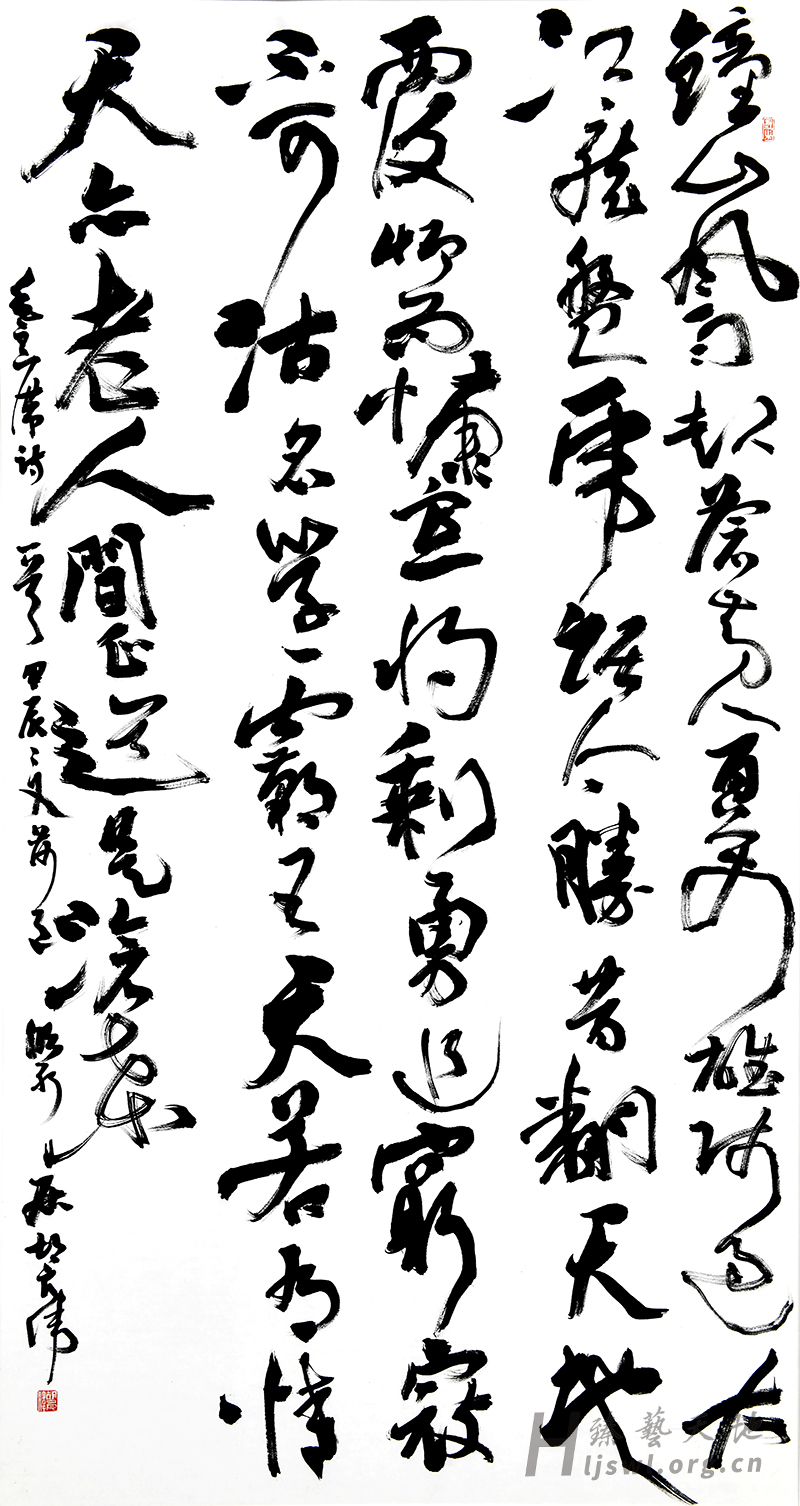 鐘山風雨起蒼黄百萬雄師過大
江龍盤虎踞今勝昔翻天地
覆慨而慷宜将剩勇追窮寇
不可沽名學霸王天若有情
天亦老人間正道是滄桑
毛主席詩一首甲辰之夏
Hljswl.org.cn